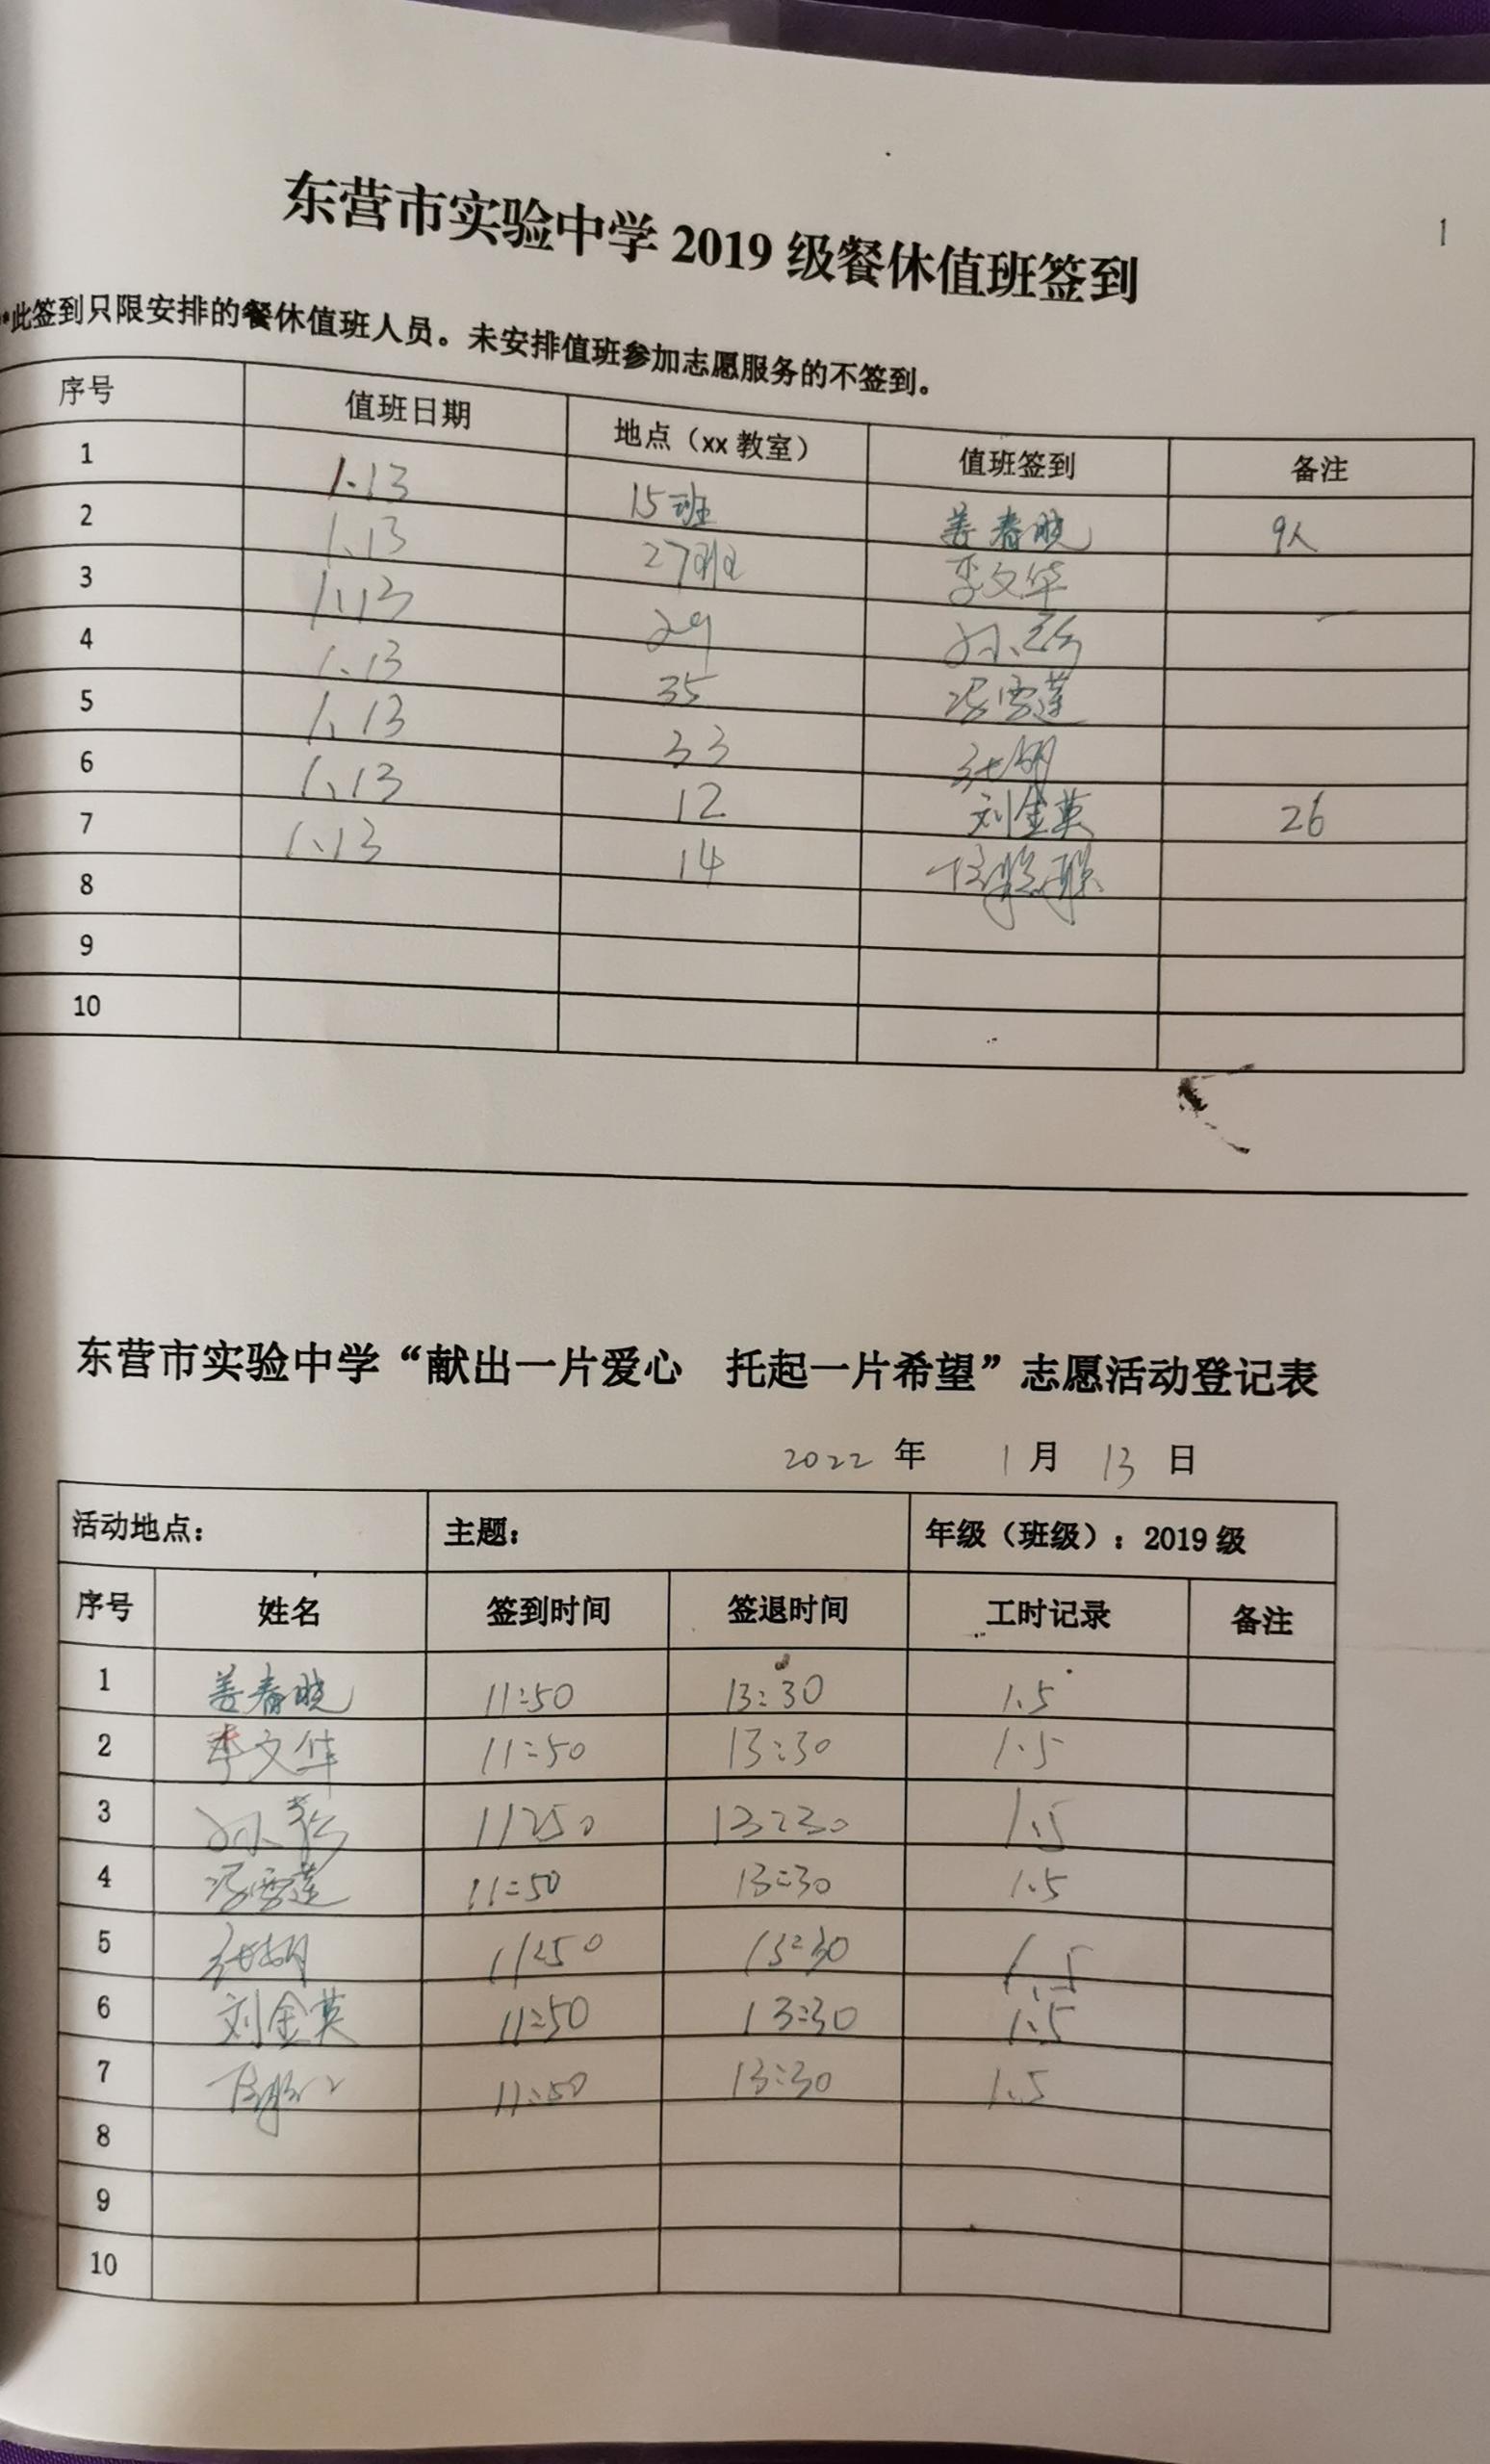 1
东营市实验中学 2019 级餐休值班签到
*此签到只限安排的餐休值班人员。未安排值班参加志愿服务的不签到。
序号 值班日期 地点（xx 教室） 值班签到 备注
1 1.13 15班 姜春晓 9人
2 1.13 27班 李文华
3 1.13 29
4 1.13 35 冯雪莲
5 1.13 33
6 1.13 12 刘金英 26
7 1.13 14
8
9
10
东营市实验中学“献出一片爱心 托起一片希望”志愿活动登记表
2022 年 1 月 13 日
活动地点： 主题： 年级（班级）：2019 级
序号 姓名 签到时间 签退时间 工时记录 备注
1 姜春晓 11:50 13:30 1.5
2 李文华 11:50 13:30 1.5
3 11:50 13:30 1.5
4 冯雪莲 11:50 13:30 1.5
5 11:50 13:30 1.5
6 刘金英 11:50 13:30 1.5
7 11:50 13:30 1.5
8
9
10